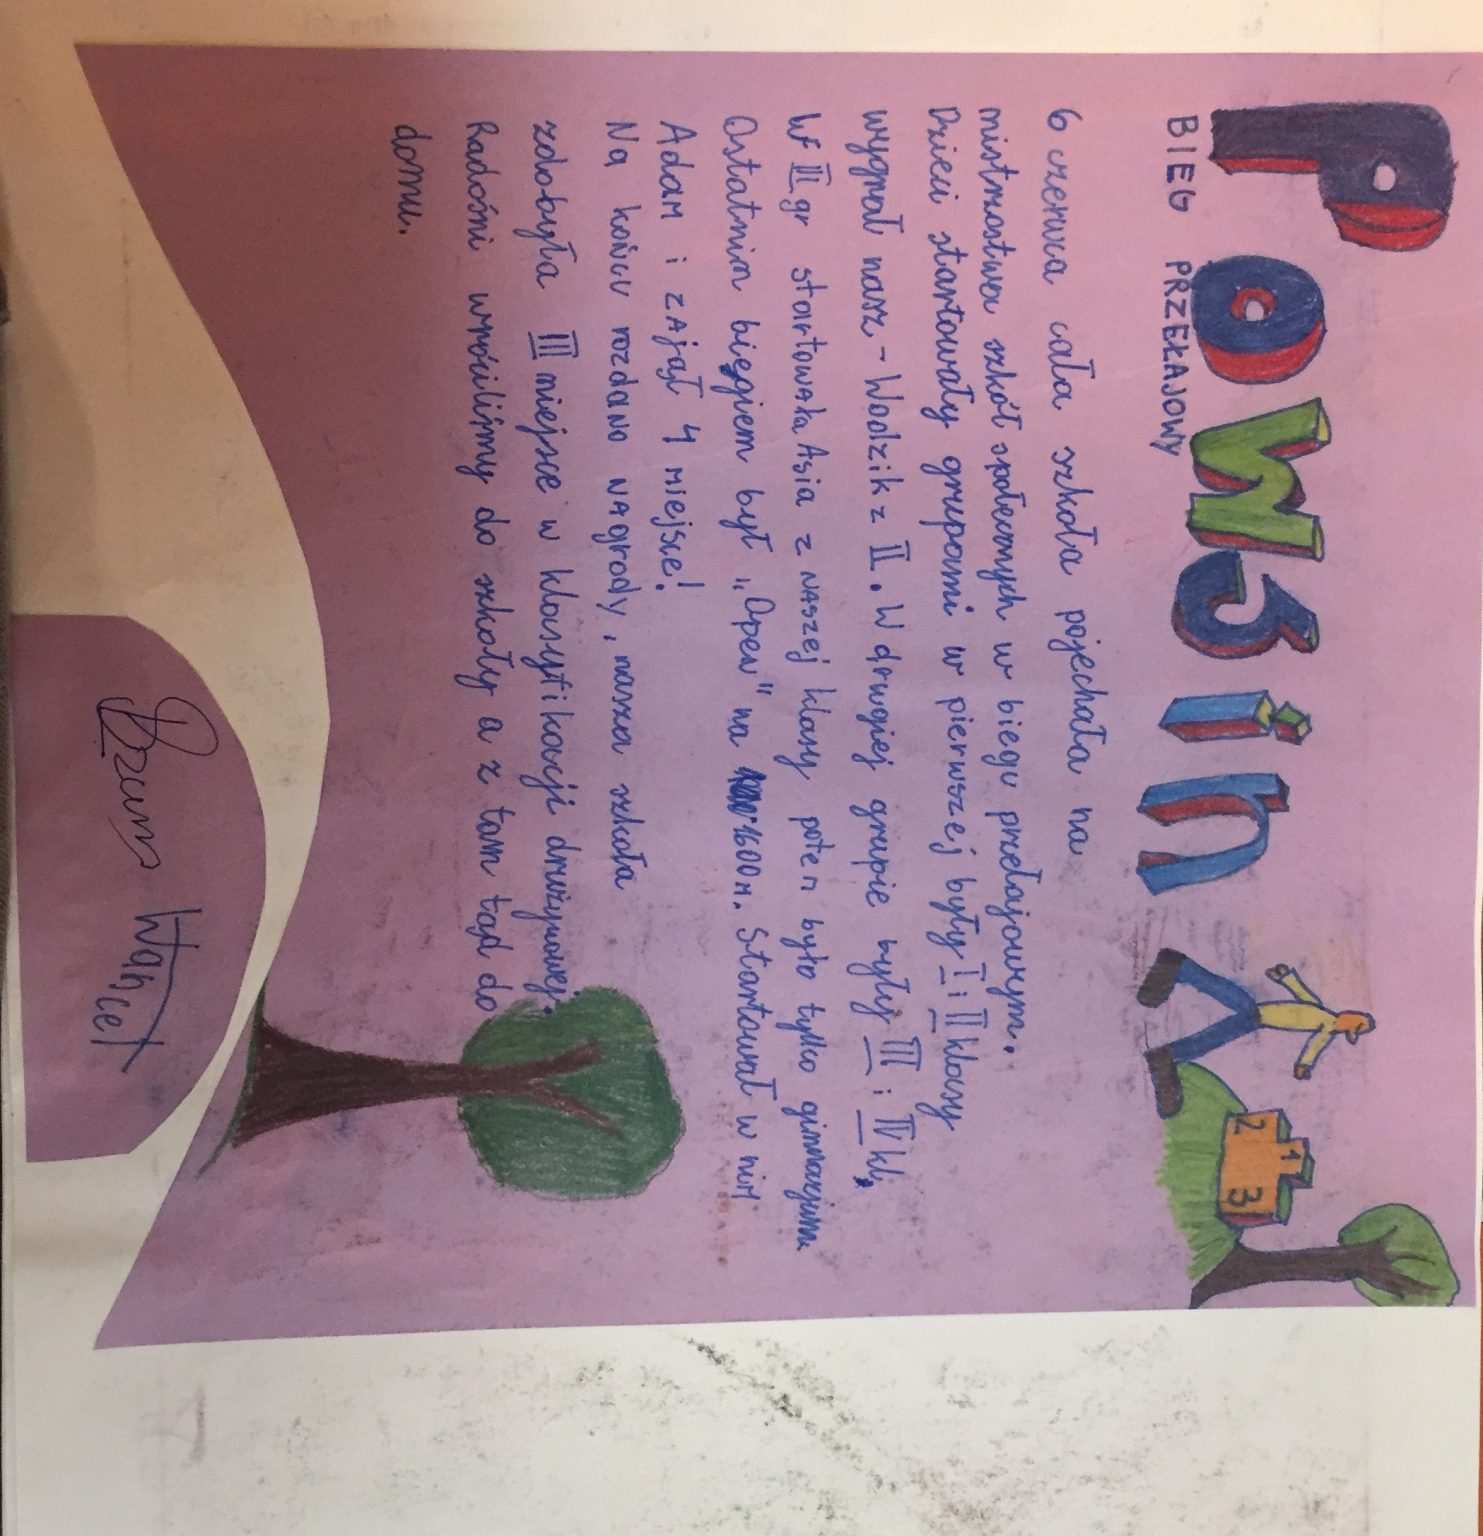 Powsin
BIEG PRZEŁAJOWY
2 1 3
6 czerwca cała szkoła pojechała na
mistrzostwa szkół społecznych w biegu przełajowym.
Dzieci startowały grupami w pierwszej były I i II klasy
wygrał nasz - Wodzik z II. W drugiej grupie były III i IV kl.
W III gr startowała Asia z naszej klasy poten było tylko gimnazjum
Ostatnim biegiem był „Open" na 1600m. Startował w nim
Adam i zajął 4 miejsce!
Na końcu rozdano nagrody, nasza szkoła
zdobyła III miejsce w klasyfikacji drużynowej.
Radośni wróciliśmy do szkoły a z tam tąd do
domu.